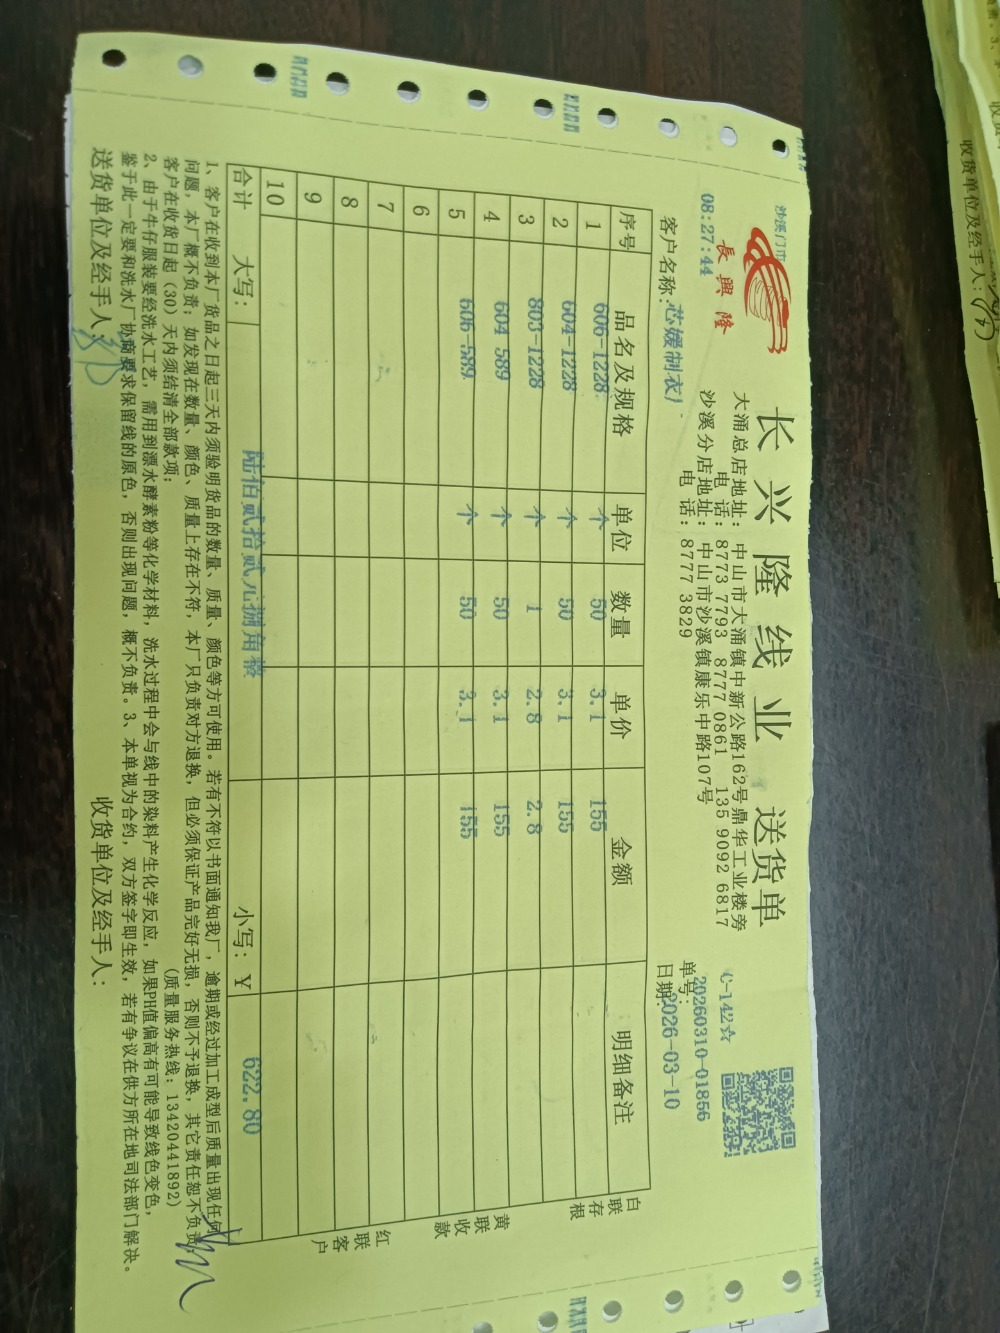 沙溪门市
長興隆
08:27:44
长兴隆线业 送货单
大涌总店地址: 中山市大涌镇中新公路162号鼎华工业楼旁
电 话: 8773 7793 8777 0861 135 9092 6817
沙溪分店地址: 中山市沙溪镇康乐中路107号
电 话: 8777 3829
C-142☆
单号: 20260310-01856
客户名称: 芯媛制衣厂
日期: 2026-03-10
序号 品名及规格 单位 数量 单价 金额 明细备注
1 606-1228 个 50 3.1 155
2 604-1228 个 50 3.1 155
3 803-1228 个 1 2.8 2.8
4 604 589 个 50 3.1 155
5 606-589 个 50 3.1 155
6
7
8
9
10
合计 大写: 陆佰贰拾贰元捌角整 小写: ¥ 622.80
白联存根
黄联收款
红联客户
1、客户在收到本厂货品之日起三天内须验明货品的数量、质量、颜色等方可使用。若有不符以书面通知我厂，逾期或经过加工成型后质量出现任何
问题，本厂概不负责；如发现在数量、颜色、质量上存在不符，本厂只负责对方退换，但必须保证产品完好无损，否则不予退换，其它责任恕不负责；
客户在收货日起（30）天内须结清全部款项； (质量服务热线: 13420441892)
2、由于牛仔服装要经洗水工艺，需用到漂水酵素粉等化学材料，洗水过程中会与线中的染料产生化学反应，如果PH值偏高有可能导致线色变色，
鉴于此一定要和洗水厂协商要求保留线的原色，否则出现问题，概不负责。3、本单视为合约，双方签字即生效，若有争议在供方所在地司法部门解决。
送货单位及经手人: 收货单位及经手人:
收货单位及经手人: